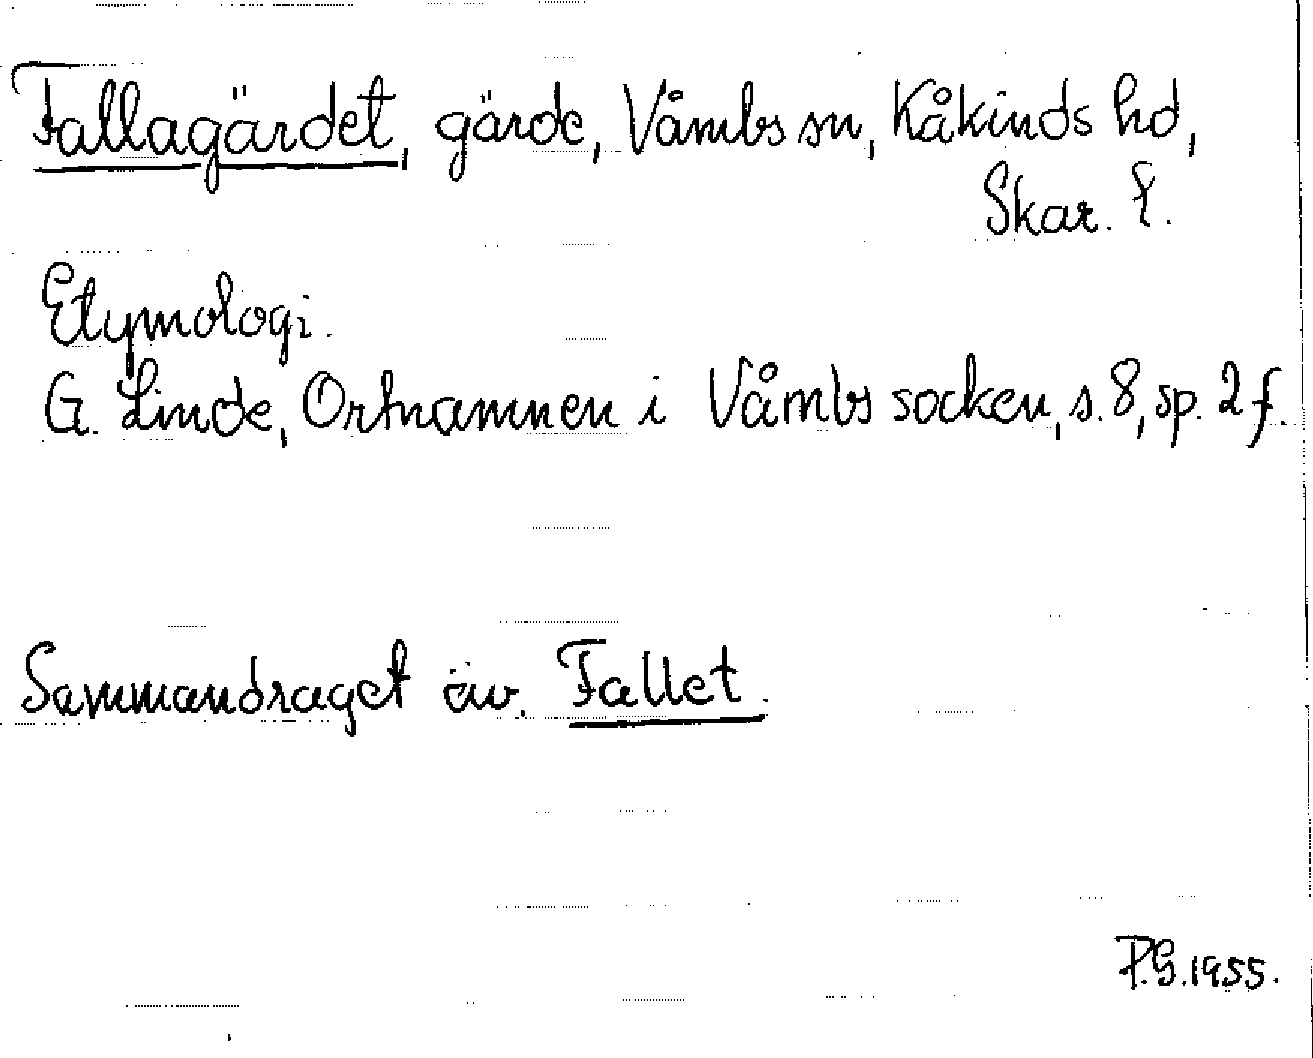 Fallagärdet, gärde, Våmbs sn, Kåkinds hd,
Skar. l.
Etymologi.
G. Linde, Ortnamnen i Våmbs socken, s. 8, sp. 2 f.
Sammandraget öv. Fallet.
P.G. 1955.